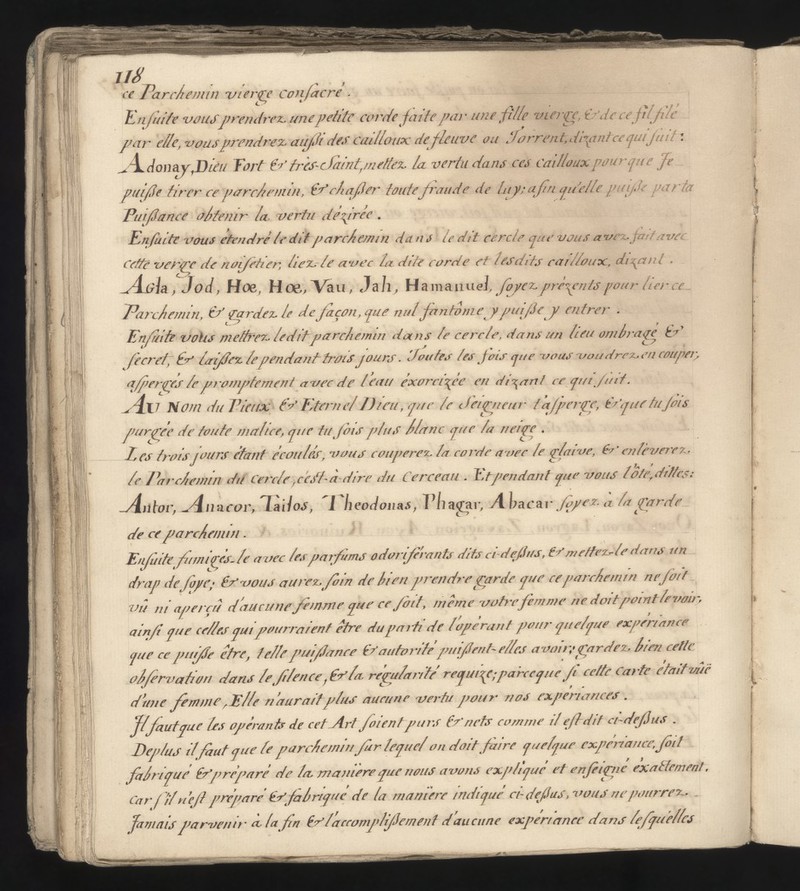 118
ce Parchemin vierge consacré.
Ensuite vous prendrez une petite corde faite par une fille vierge, & de ce fil filé
par elle, vous prendrez außi des cailloux de fleuve ou Torrent, dizant ce qui suit :
Adonay, Dieu Fort & très-Saint, mettez la vertu dans ces cailloux pour que Je
puiße tirer ce parchemin, & chaßer toute fraude de luy; afin qu'elle puiße par ta
Puißance obtenir la vertu dézirée.
Ensuite vous étendré le dit parchemin dans le dit cercle que vous avez fait avec
cette verge de noisetier, liez-le avec la dite corde et lesdits cailloux, dizant.
Agla, Jod, Hœ, Hœ, Vau, Jah, Hamanuel, soyez prézents pour lier ce
Parchemin, & gardez le de façon, que nul fantôme y puiße y entrer.
Ensuite vous mettrez ledit parchemin dans le cercle, dans un lieu ombragé &
secret, & laißez le pendant trois jours. Toutes les fois que vous voudrez en couper,
aspergés le promptement avec de l'eau éxorcizée en dizant ce qui suit.
Au Nom du Pieux & Eternel Dieu, que le Seigneur t'asperge, & que tu sois
purgée de toute malice, que tu sois plus blanc que la neige.
Les trois jours étant écoulés, vous couperez la corde avec le glaive, & enlèverez
le Parchemin du cercle, c'est-à-dire du Cerceau. Et pendant que vous l'ôté, dittes:
Antor, Anacor, Tailos, Theodonas, Phagar, Abacar soyez à la garde
de ce parchemin.
Ensuite fumigés-le avec les parfums odoriférants dits ci-deßus, & mettez-le dans un
drap de soye; & vous aurez soin de bien prendre garde que ce parchemin ne soit
vû ni aperçû d'aucune femme que ce soit, même votre femme ne doit point le voir,
ainsi que celles qui pourraient être du parti de l'opérant pour quelque expériance
que ce puiße être, telle puißance & autorité puißent-elles avoir; gardez bien cette
observation dans le silence, & la régularité requize; parceque si cette Carte était vûë
d'une femme, Elle n'aurait plus aucune vertu pour nos expériances.
Il faut que les opérants de cet Art soient purs & nets comme il est dit ci-deßus.
De plus il faut que le parchemin sur lequel on doit faire quelque expériance, soit
fabriqué & préparé de la manière que nous avons expliqué et enseigné éxactement.
car s'il n'est préparé & fabriqué de la manière indiqué ci-deßus, vous ne pourrez
Jamais parvenir à la fin & l'accomplißement d'aucune expériance dans lesquelles